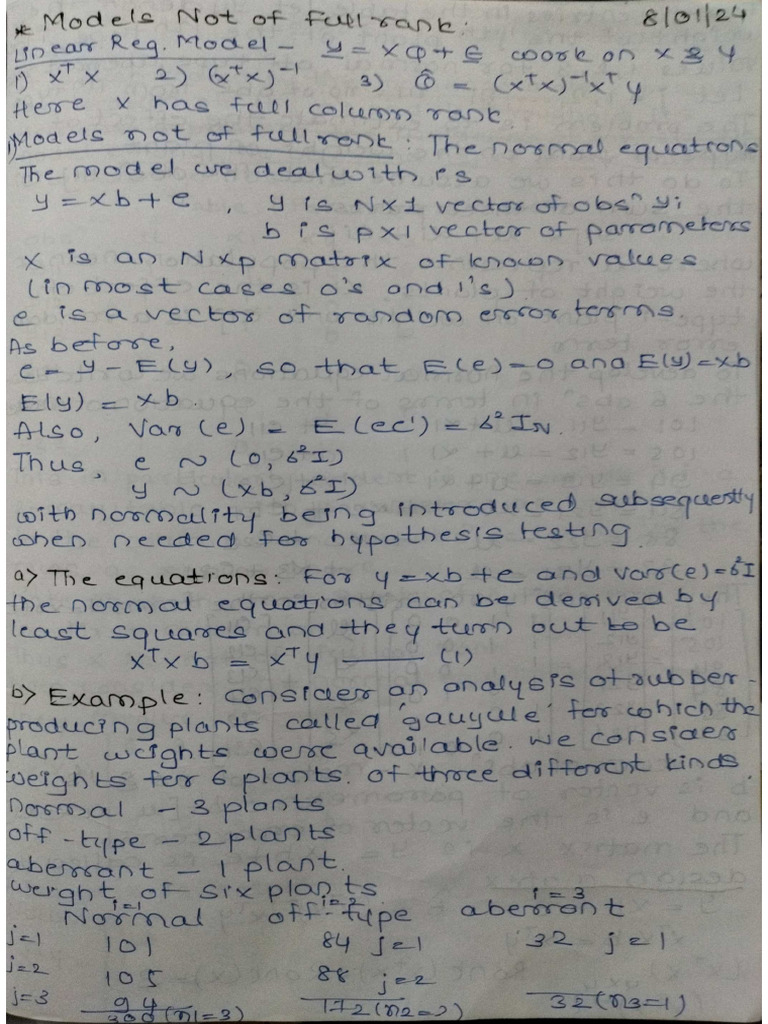 * Models Not of full rank. 8/01/24
Linear Reg. Model - y = xφ + ε work on x & y
1) xᵀx 2) (xᵀx)⁻¹ 3) φ̂ = (xᵀx)⁻¹xᵀy
Here x has full column rank
1) Models not of full rank: The normal equations
The model we deal with is
y = xb + e , y is N×1 vector of obsⁿ yi
b is p×1 vector of parrameters
x is an N×p matrix of known values
(in most cases 0's and 1's)
e is a vector of random error terms.
As before,
e = y - E(y), so that E(e) = 0 and E(y) = xb
E(y) = xb.
Also, Var (e) = E(ee') = 6² IN.
Thus, e ~ (0, 6²I)
y ~ (xb, 6²I)
with normality being introduced subsequestly
when needed for hypothesis testing
a> The equations: For y = xb + e and var(e) = 6²I
the normal equations can be derived by
least squares and they turn out to be
xᵀxb = xᵀy —— (1)
b> Example: consider an analysis of rubber-
producing plants called 'gauyule' for which the
plant weights were available. we consider
weights for 6 plants. of three different kinds
normal - 3 plants
off-type - 2 plants
aberrant - 1 plant.
weight of six plants
i=1 i=2 i=3
Normal off-type aberront
j=1 101 84 j=1 32 j=1
j=2 105 88 j=2
j=3 94
300 (n1=3) 172 (n2=2) 32 (n3=1)